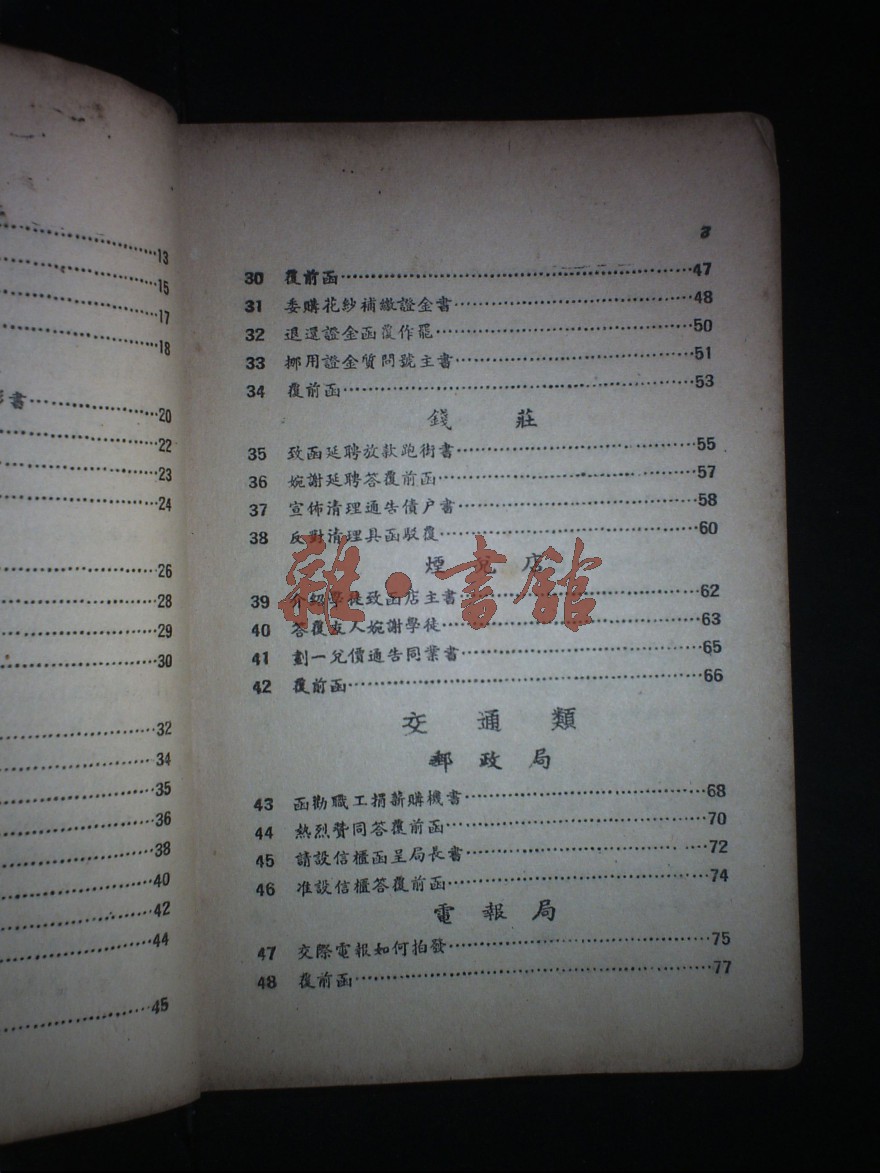 13
15
17
18
書 20
22
23
24
26
28
29
30
32
34
35
36
38
40
42
44
45
3
30 覆前函 47
31 委購花紗補繳證金書 48
32 退還證金函覆作罷 50
33 挪用證金質問號主書 51
34 覆前函 53
錢莊
35 致函延聘放款跑街書 55
36 婉謝延聘答覆前函 57
37 宣佈清理通告債户書 58
38 反對清理具函駁覆 60
煙兌店
39 介紹學徒致函店主書 62
40 答覆友人婉謝學徒 63
41 劃一兌價通告同業書 65
42 覆前函 66
交通類
郵政局
43 函勸職工捐薪購機書 68
44 熱烈贊同答覆前函 70
45 請設信櫃函呈局長書 72
46 准設信櫃答覆前函 74
電報局
47 交際電報如何拍發 75
48 覆前函 77
雜·書館